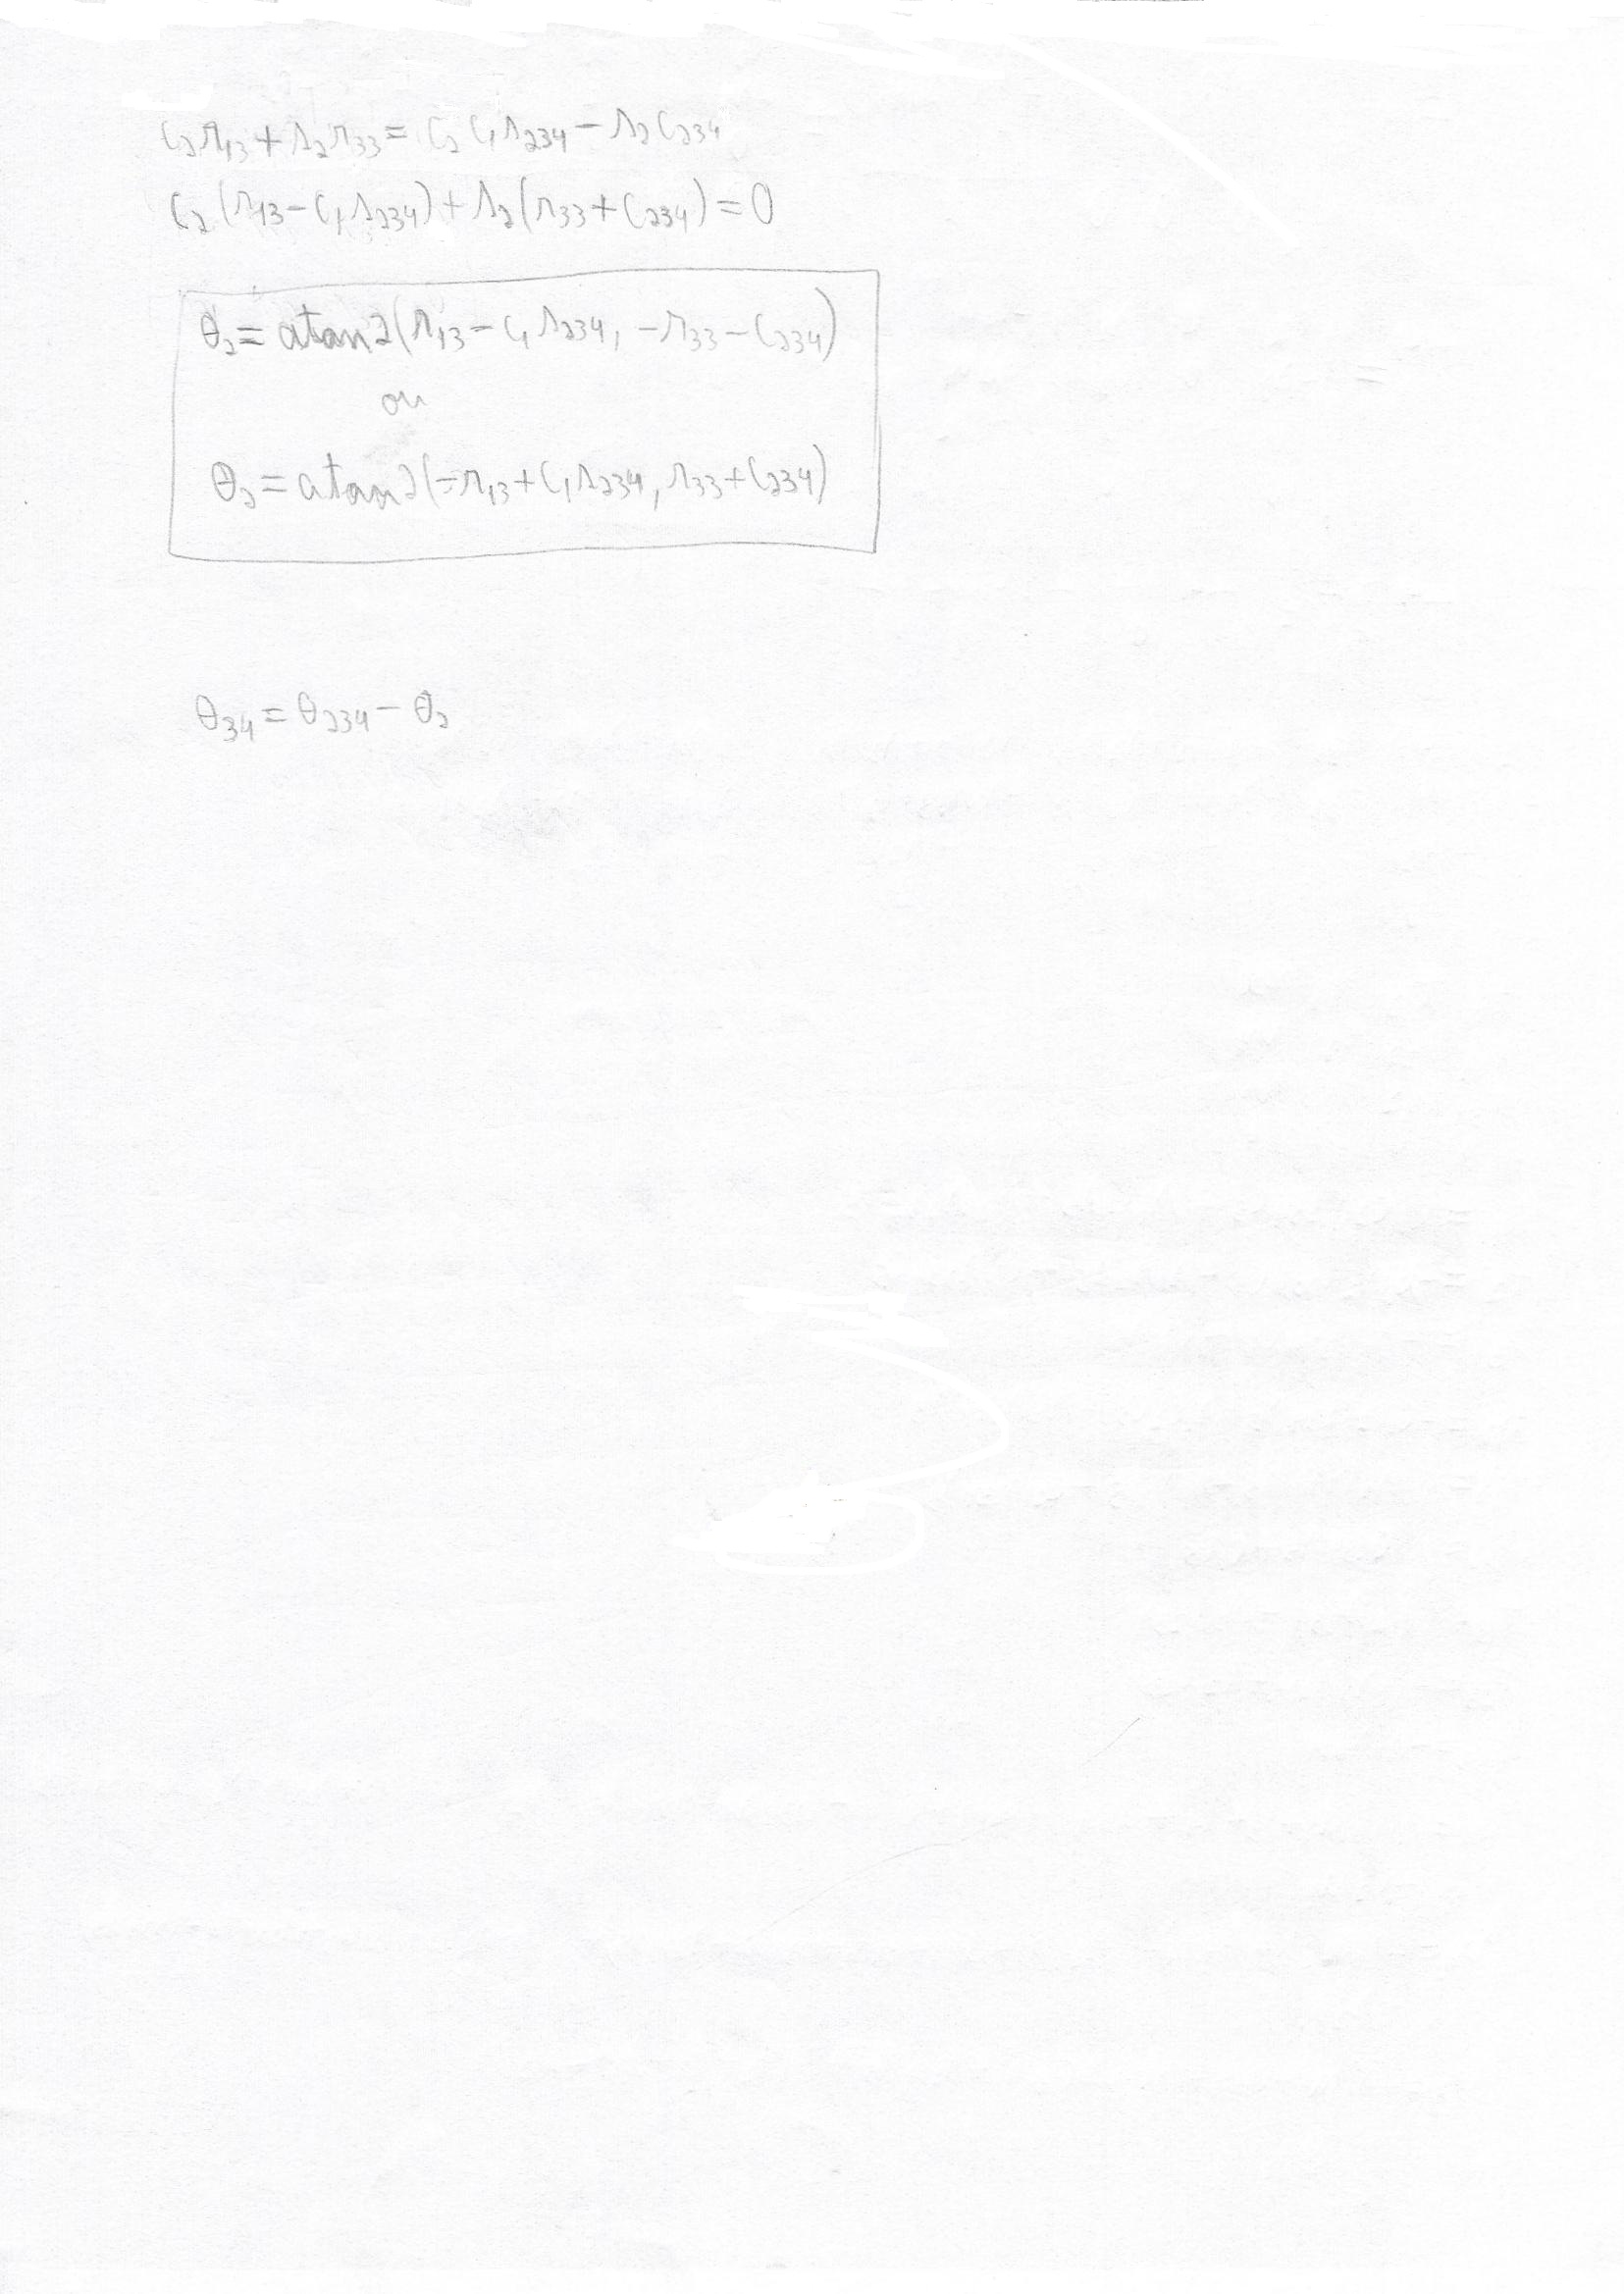 c₂r₁₃+s₂r₃₃= c₂ c₁s₂₃₄ − s₂c₂₃₄
c₂(r₁₃−c₁s₂₃₄)+s₂(r₃₃+c₂₃₄)=0
θ₂= atan2(r₁₃−c₁s₂₃₄, −r₃₃−c₂₃₄)
ou
θ₂=atan2(−r₁₃+c₁s₂₃₄, r₃₃+c₂₃₄)
θ₃₄=θ₂₃₄−θ₂